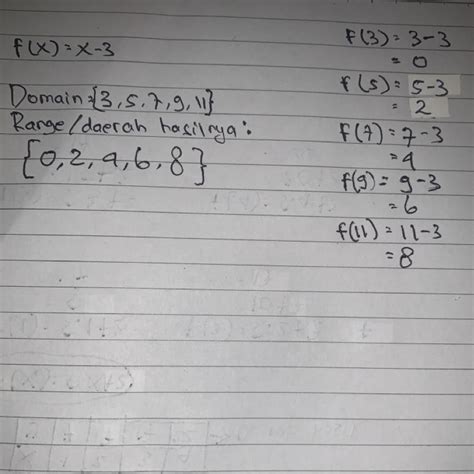 f(x) = x-3
Domain: {3, 5, 7, 9, 11}
Range/daerah hasilnya:
{0, 2, 4, 6, 8}
f(3) = 3-3
= 0
f(5) = 5-3
= 2
f(7) = 7-3
= 4
f(9) = 9-3
= 6
f(11) = 11-3
= 8